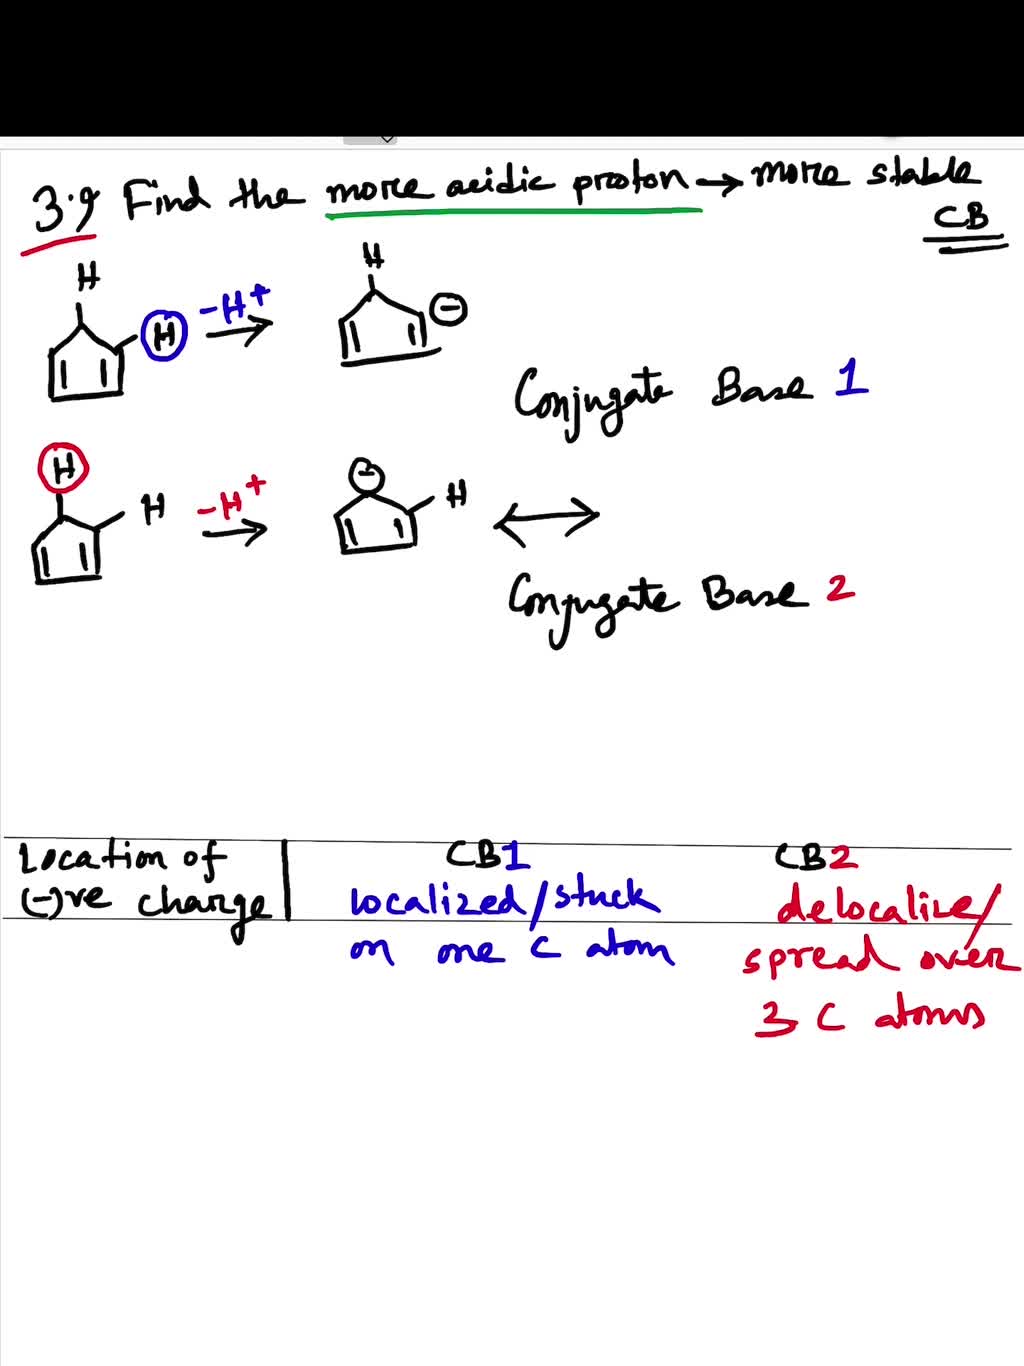 3.9 Find the more acidic proton → more stable
CB
H
H
-H+
H
⊖
Conjugate Base 1
H
H
-H+
⊖
H
Conjugate Base 2
Location of
(-)ve charge
CB1
localized/stuck
on one C atom
CB2
delocalize/
spread over
3 C atoms